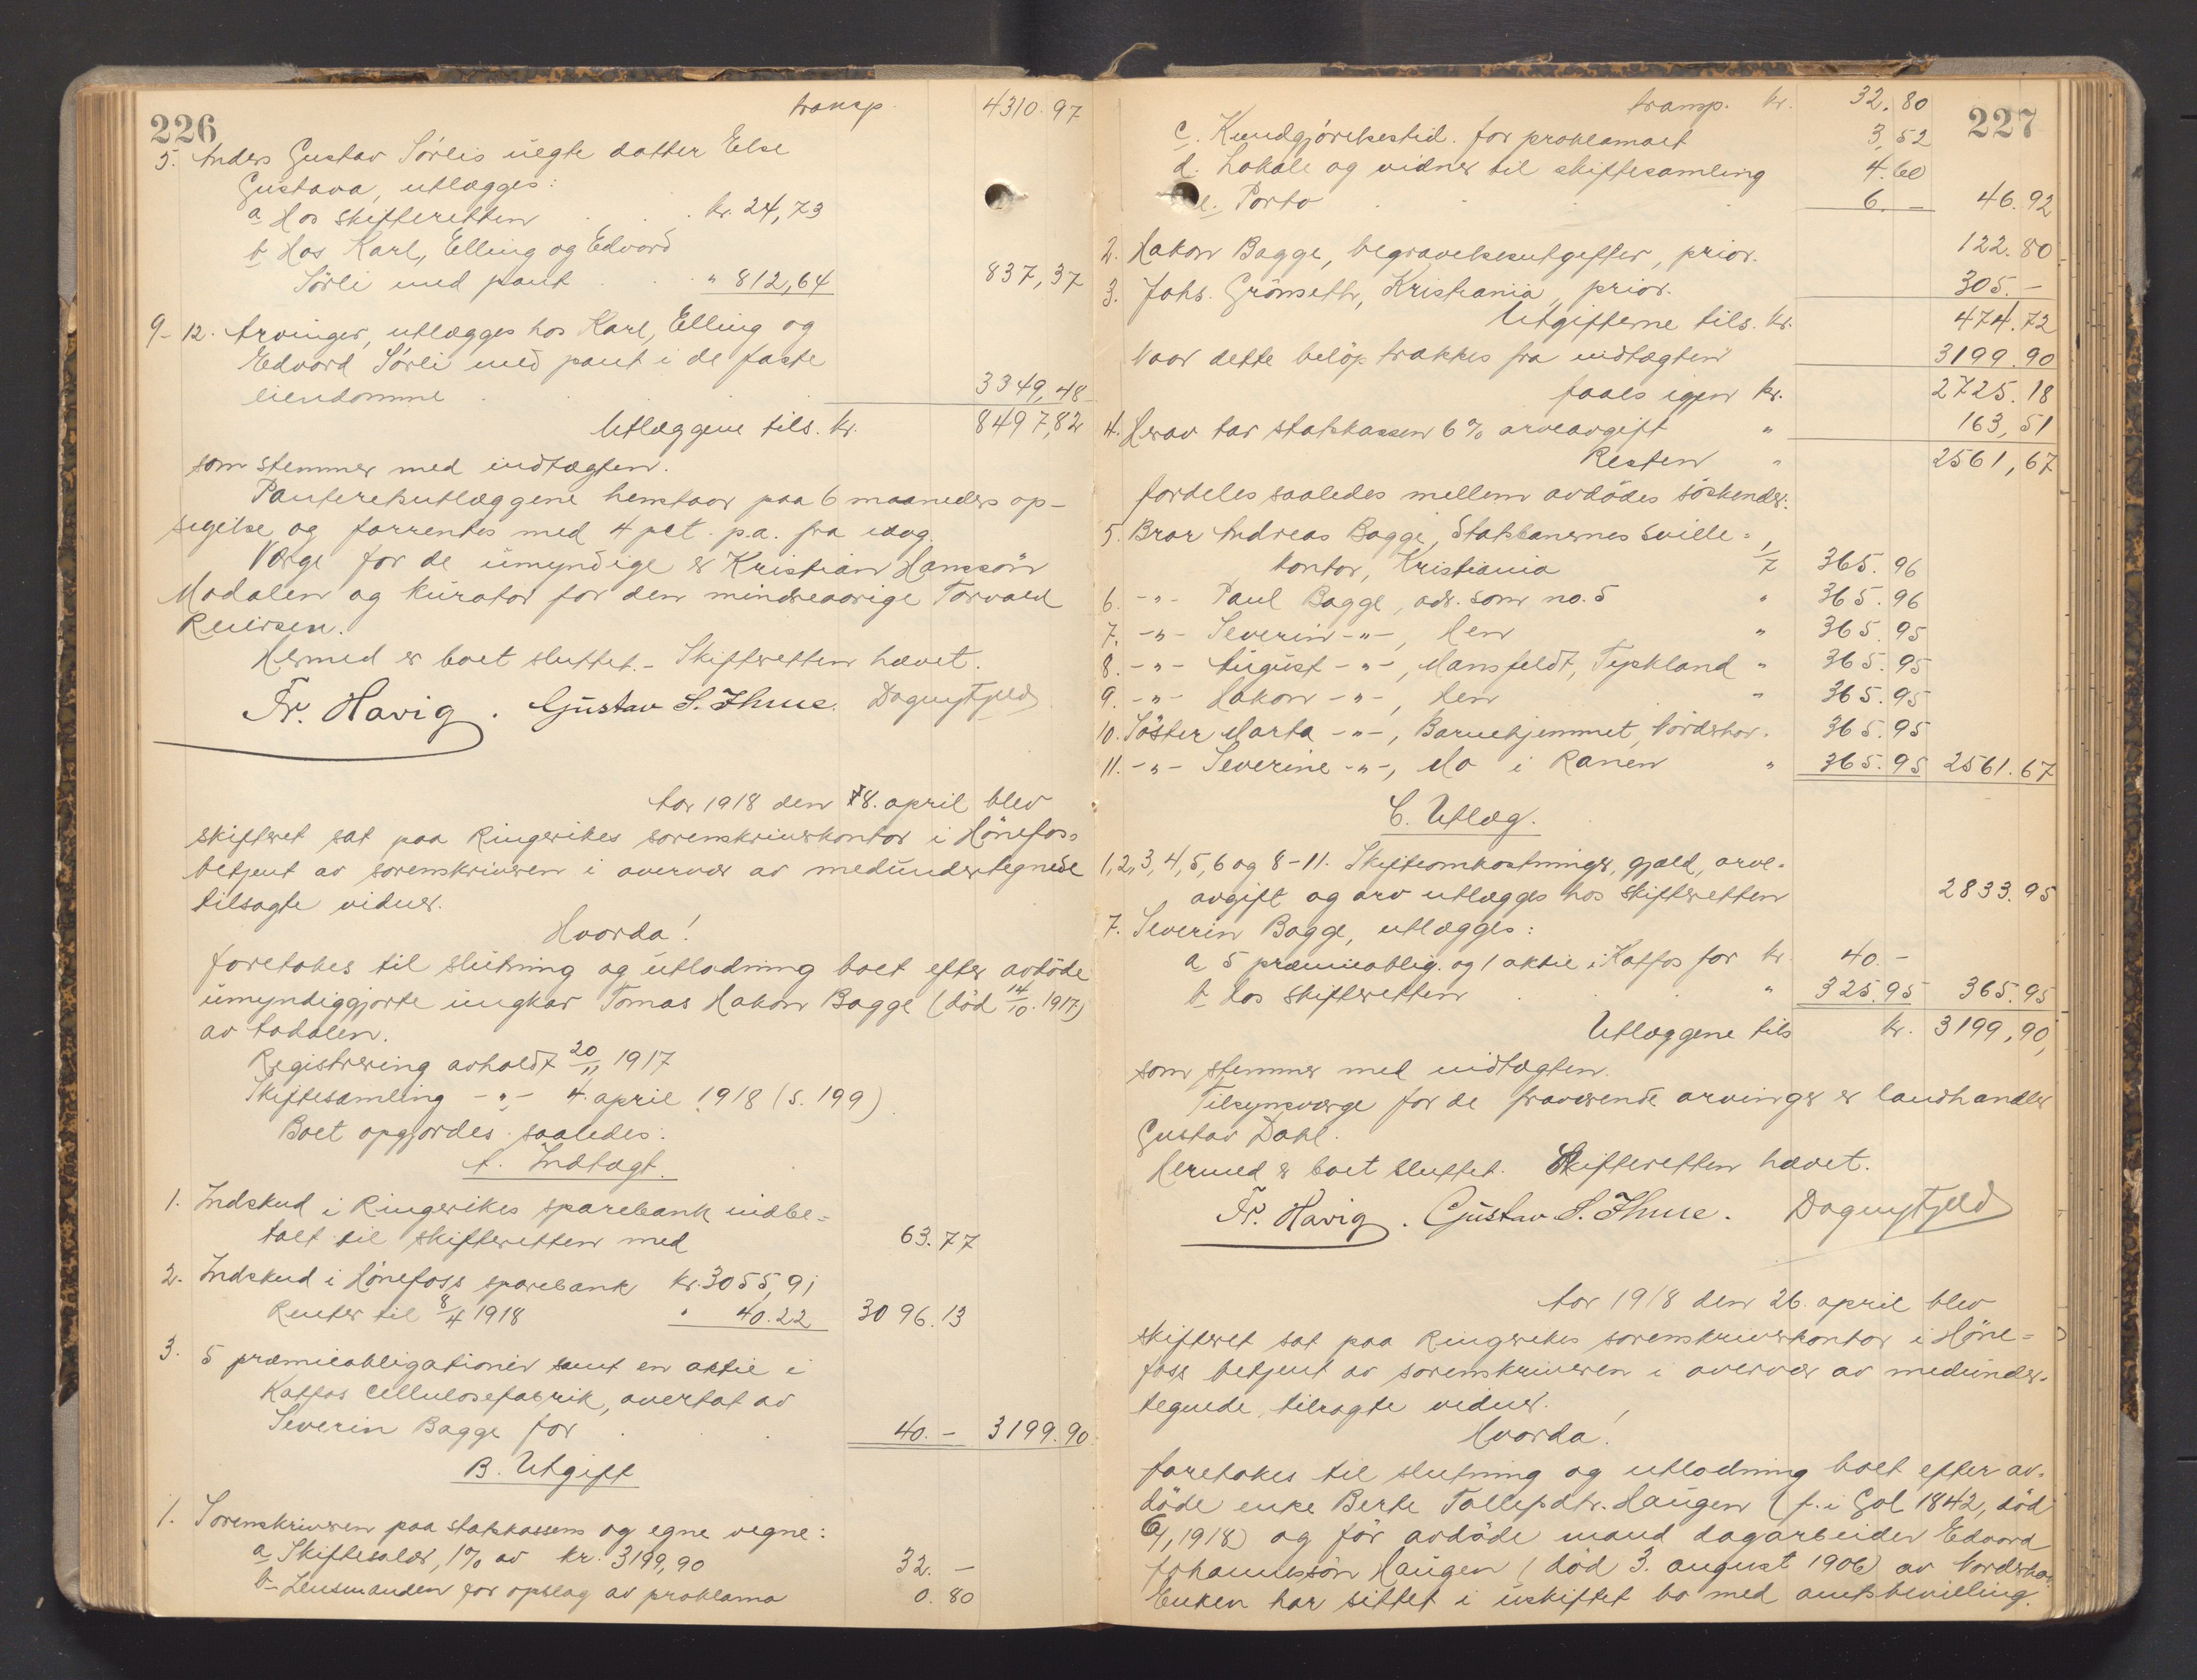 226
transp. 4310.97
5. Anders Gustav Sörlis uegte datter Else
Gustava, utlægges:
a Hos skifteretten . . . kr. 24,73
b Hos Karl, Elling og Edvard
Sörli med pant . . " 812,64 837,37
9-12. Arvinger, utlægges hos Karl, Elling og
Edvard Sörli med pant i de faste
eiendomme . . . 3349,48
Utlæggene tils. kr. 8497,82
som stemmer med indtægten.
Panteretsutlæggene henstaar paa 6 maaneders op-
sigelse og forrentes med 4 pct. p.a. fra idag.
Værge for de umyndige er Kristian Hanssön
Modalen og kurator for den mindreaarige Torvald
Reiersen.
Hermed er boet sluttet. - Skifteretten hævet.
Fr. Havig. Gustav S. Thue. Dagny Fjeld
Aar 1918 den 18. april blev
skifteret sat paa Ringerikes sorenskriverkontor i Hönefoss
betjent av sorenskriveren i overvær av medundertegnede
tilsagte vidner.
Hvorda!
foretokes til slutning og utlodning boet efter avdöde
umyndiggjorte ungkar Tomas Hakon Bagge (död 14/10. 1917)
av Aadalen.
Registrering avholdt 20/11 1917
Skiftesamling -"- 4. april 1918 (s. 199)
Boet opgjordes saaledes:
A. Indtægt.
1. Indskud i Ringerikes sparebank indbe=
talt til skifteretten med 63.77
2. Indskud i Hönefoss sparebank kr. 3055,91
Renter til 8/4 1918 " 40.22 3096.13
3. 5 præmieobligationer samt en aktie i
Katfos cellulosefabrik, overtat av
Severin Bagge for . . 40.- 3199.90
B. Utgift
1. Sorenskriveren paa statskassens og egne vegne:
a Skiftesalær, 1% av kr. 3199,90 32. -
b Lensmanden for opslag av proklama 0.80
227
transp. kr. 32.80
c. Kundgjörelsestid. for proklamaet 3,52
d. Lokale og vidner til skiftesamling 4.60
e. Porto . . . 6. - 46.92
2. Hakon Bagge, begravelsesutgifter, prior. 122.80
3. Johs. Grönseth, Kristiania, prior. 305.-
Utgifterne tils. kr. 474.72
Naar dette belöp trækkes fra indtægten 3199.90
faaes igjen kr. 2725.18
4. Herav tar statskassen 6% arveavgift " 163,51
Resten " 2561,67
fordeles saaledes mellem avdödes söskender:
5. Bror Andreas Bagge, Statsbanernes bille=
kontor, Kristiania 1/7 365.96
6. -"- Paul Bagge, adr. som no. 5 " 365.96
7. -"- Severin -"-, Hen " 365.95
8. -"- August -"-, Mansfeldt, Tyskland " 365.95
9. -"- Hakon -"-, Hen " 365.95
10. Söster Marta -"-, Barnehjemmet, Norderhov " 365.95
11. -"- Severine -"-, Mo i Ranen " 365.95 2561.67
C. Utlæg.
1, 2, 3, 4, 5, 6 og 8-11. Skifteomkostninger, gjæld, arve-
avgift og arv utlægges hos skifteretten 2833.95
7. Severin Bagge, utlægges:
a 5 præmieoblig. og 1 aktie i Katfos for kr. 40.-
b Hos skifteretten . . . " 325.95 365.95
Utlæggene tils kr. 3199,90,
som stemmer med indtægten.
Tilsynsværge for de fraværende arvinger er landhandler
Gustav Dahl.
Hermed er boet sluttet. Skifteretten hævet.
Fr. Havig. Gustav S. Thue. Dagny Fjeld
Aar 1918 den 26. april blev
skifteret sat paa Ringerikes sorenskriverkontor i Höne=
foss betjent av sorenskriveren i overvær av medunder-
tegnede, tilsagte vidner.
Hvorda!
foretokes til slutning og utlodning boet efter av-
döde enke Berte Tollefsdtr. Haugen (f. i Gol 1842, död
6/1, 1918) og för avdöde mand dagarbeider Edvard
Johannessön Haugen (död 3. august 1906) av Norderhov
Enken har sittet i uskiftet bo med amtsbevilling.